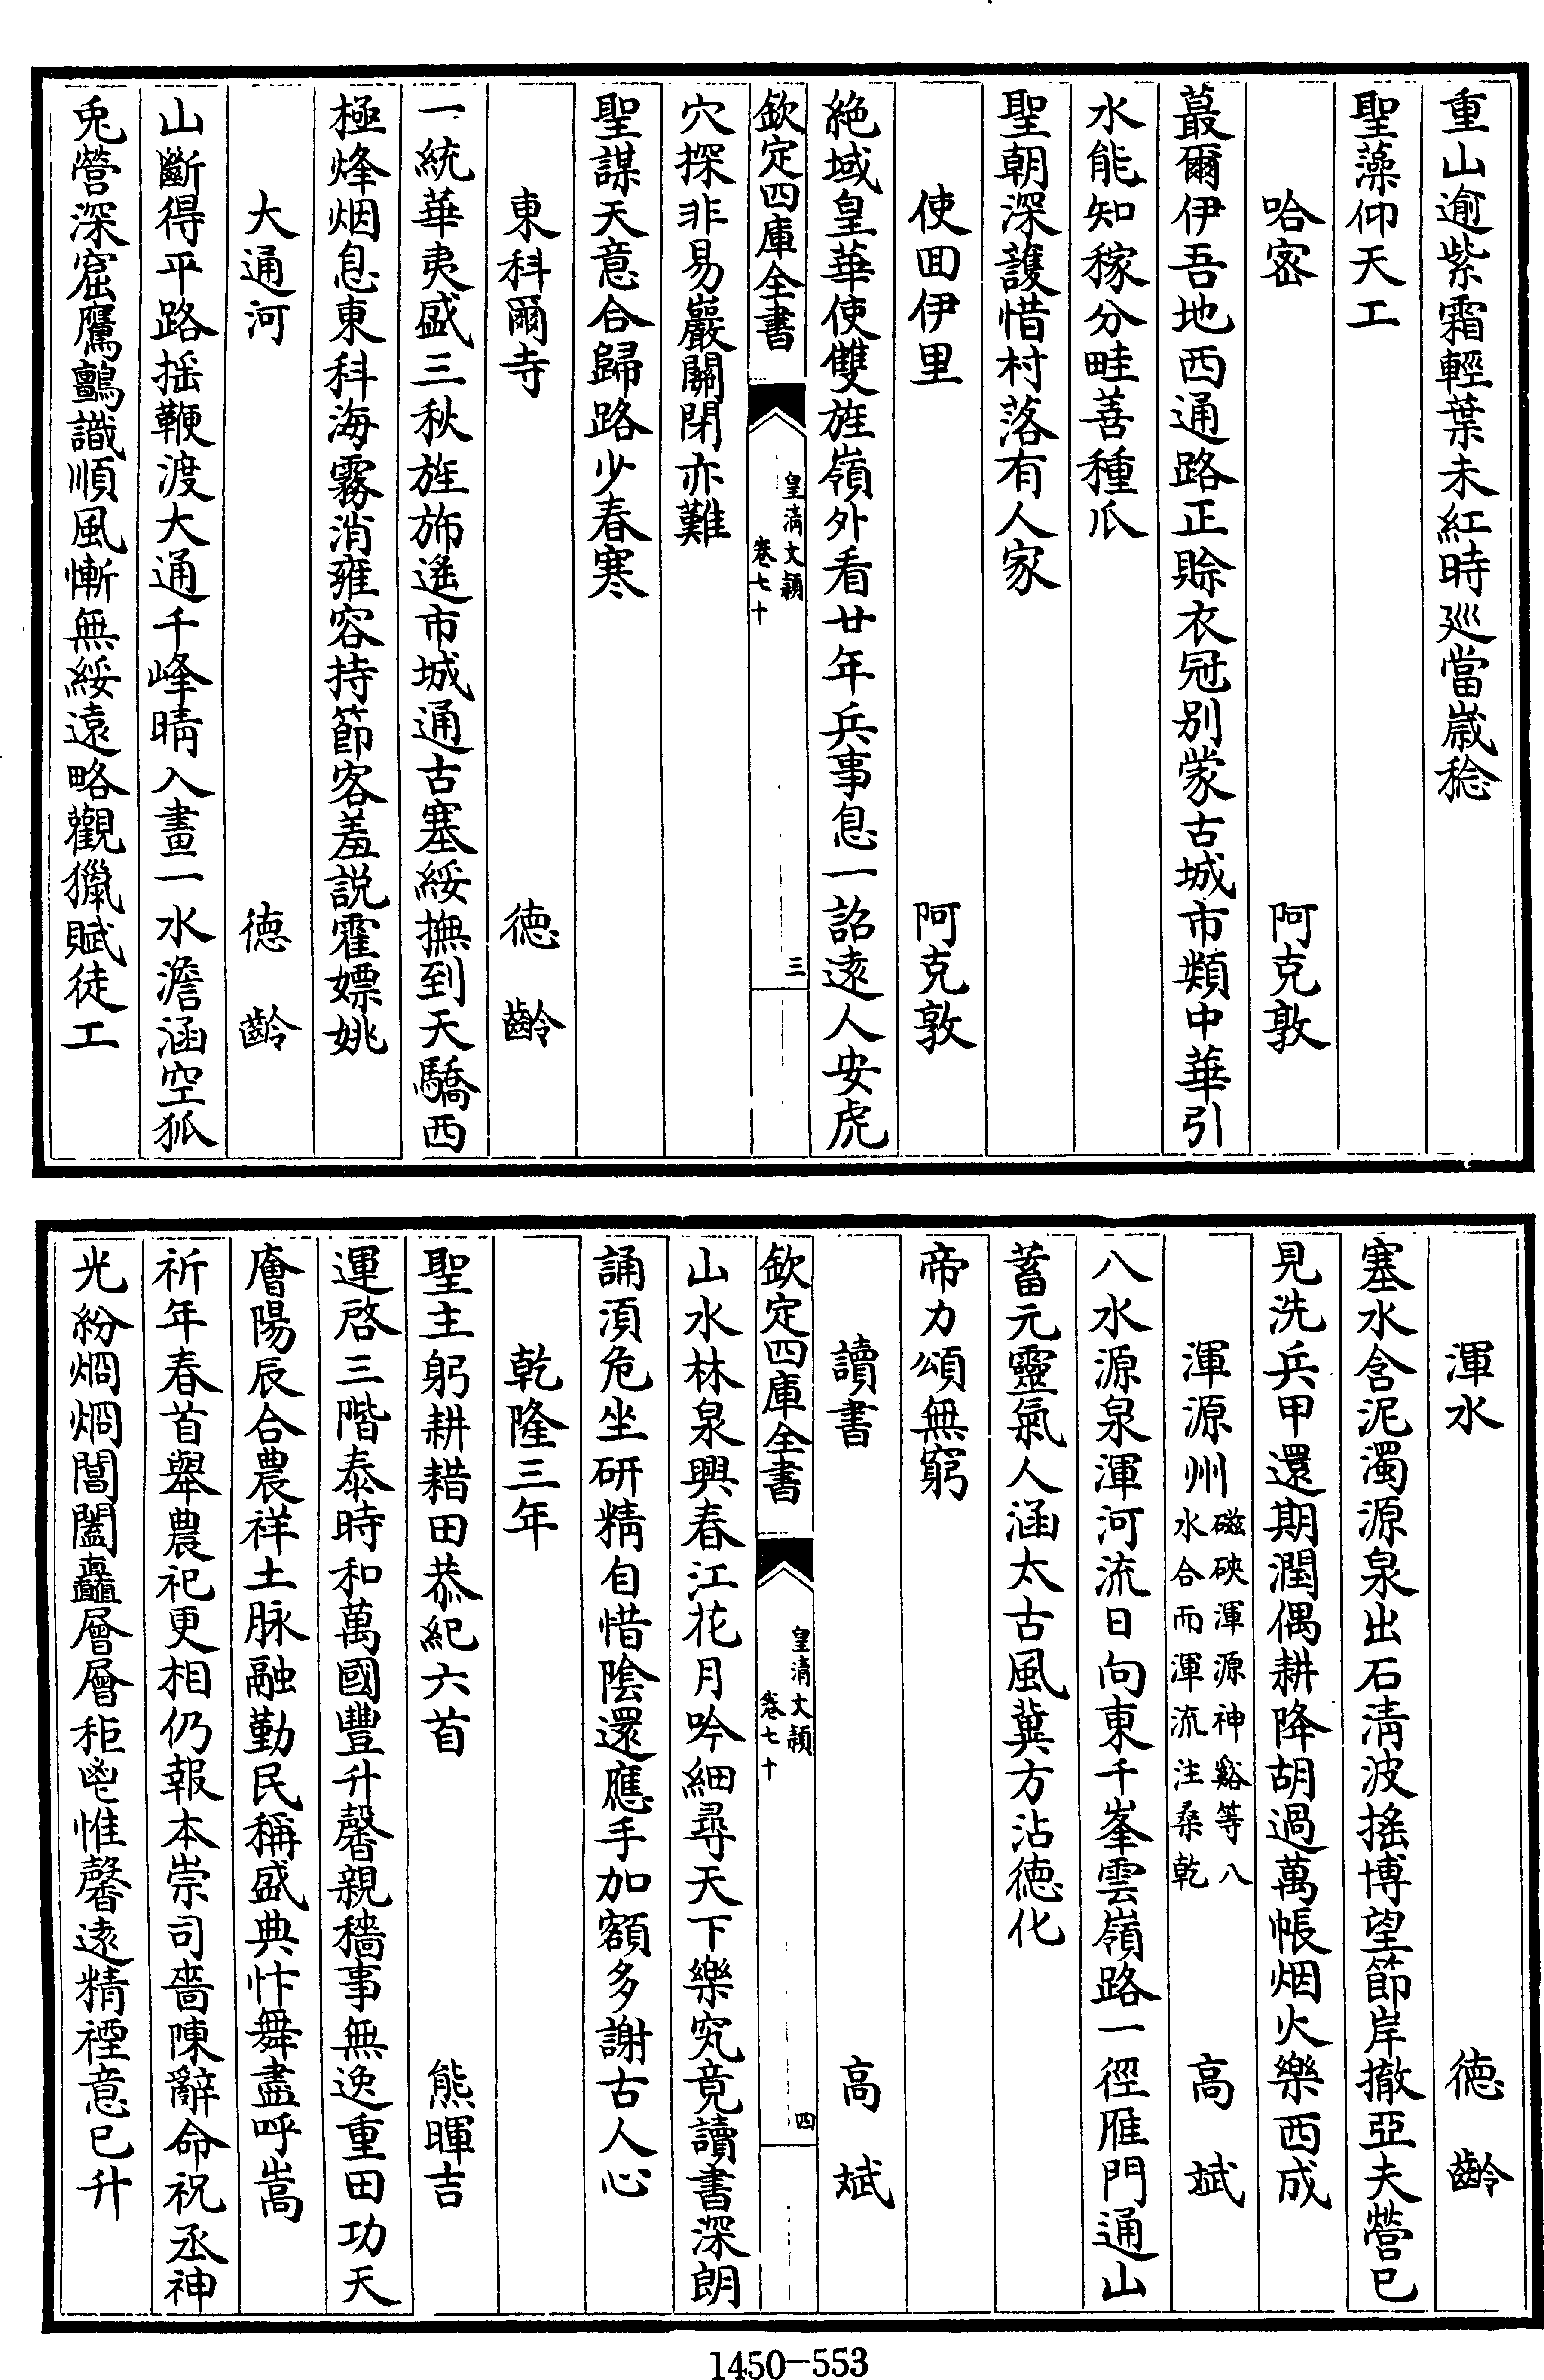 重山逾紫霜輕葉未紅時廵當嵗稔
聖藻仰天工
哈宻 阿克敦
蕞爾伊吾地西通路正賖衣冠别蒙古城市類中華引
水能知稼分畦善種瓜
聖朝深護惜村落有人家
使囬伊里 阿克敦
絶域皇華使雙旌嶺外看廿年兵事息一詔逺人安虎
欽定四庫全書
皇清文穎
卷七十
三
穴探非易嚴關閉亦難
聖謀天意合歸路少春寒
東科爾寺 徳齡
一統華夷盛三秋旌斾遥市城通古塞綏撫到天驕西
極烽烟息東科海霧消雍容持節客羞説霍嫖姚
大通河 徳齡
山斷得平路揺鞭渡大通千峰晴入畫一水澹涵空狐
兎營深窟鷹鸇識順風慚無綏遠略觀獵賦徒工
渾水 徳齡
塞水含泥濁源泉出石清波搖博望節岸撤亞夫營已
見洗兵甲還期潤偶耕降胡過萬帳烟火樂西成
渾源州 磁硤渾源神谿等八水合而渾流注桑乾 高斌
八水源泉渾河流日向東千峯雲嶺路一徑雁門通山
蓄元靈氣人涵太古風冀方沾徳化
帝力頌無窮
讀書 高斌
欽定四庫全書
皇清文穎
卷七十
四
山水林泉興春江花月吟細尋天下樂究竟讀書深朗
誦湏危坐研精自惜陰還應手加額多謝古人心
乾隆三年
聖主躬耕耤田恭紀六首 熊暉吉
運啓三階泰時和萬國豐升馨親穡事無逸重田功天
廥陽辰合農祥土脉融勤民稱盛典忭舞盡呼嵩
祈年春首舉農祀更相仍報本崇司嗇陳辭命祝丞神
光紛烱烱閶闔矗層層秬鬯惟馨逺精禋意已升
1450—553